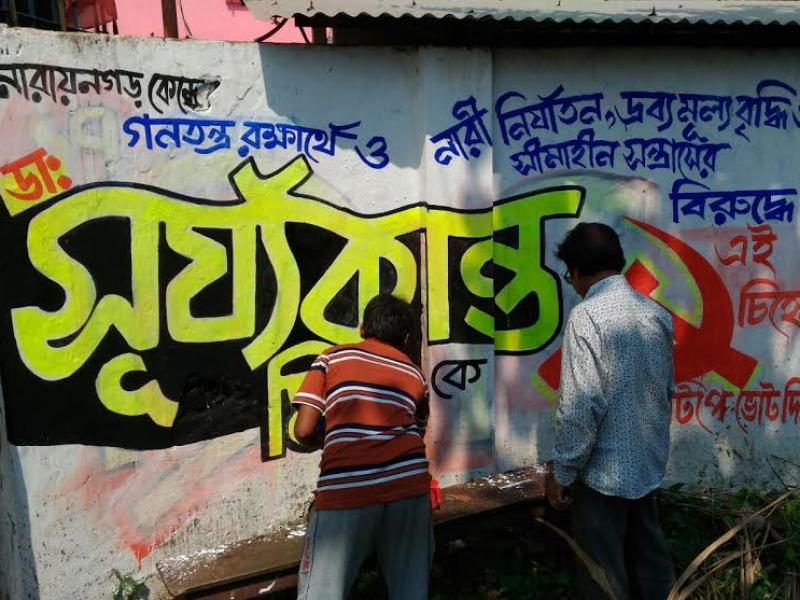 নারায়নগড় কেন্দ্রে
গনতন্ত্র রক্ষার্থে ও
নারী নির্যাতন, দ্রব্যমূল্যবৃদ্ধি ও
সীমাহীন সন্ত্রাসের
বিরুদ্ধে
ডাঃ
সূর্য্যকান্ত
কে
এই
চিহ্নে
টিপে ভোট দি